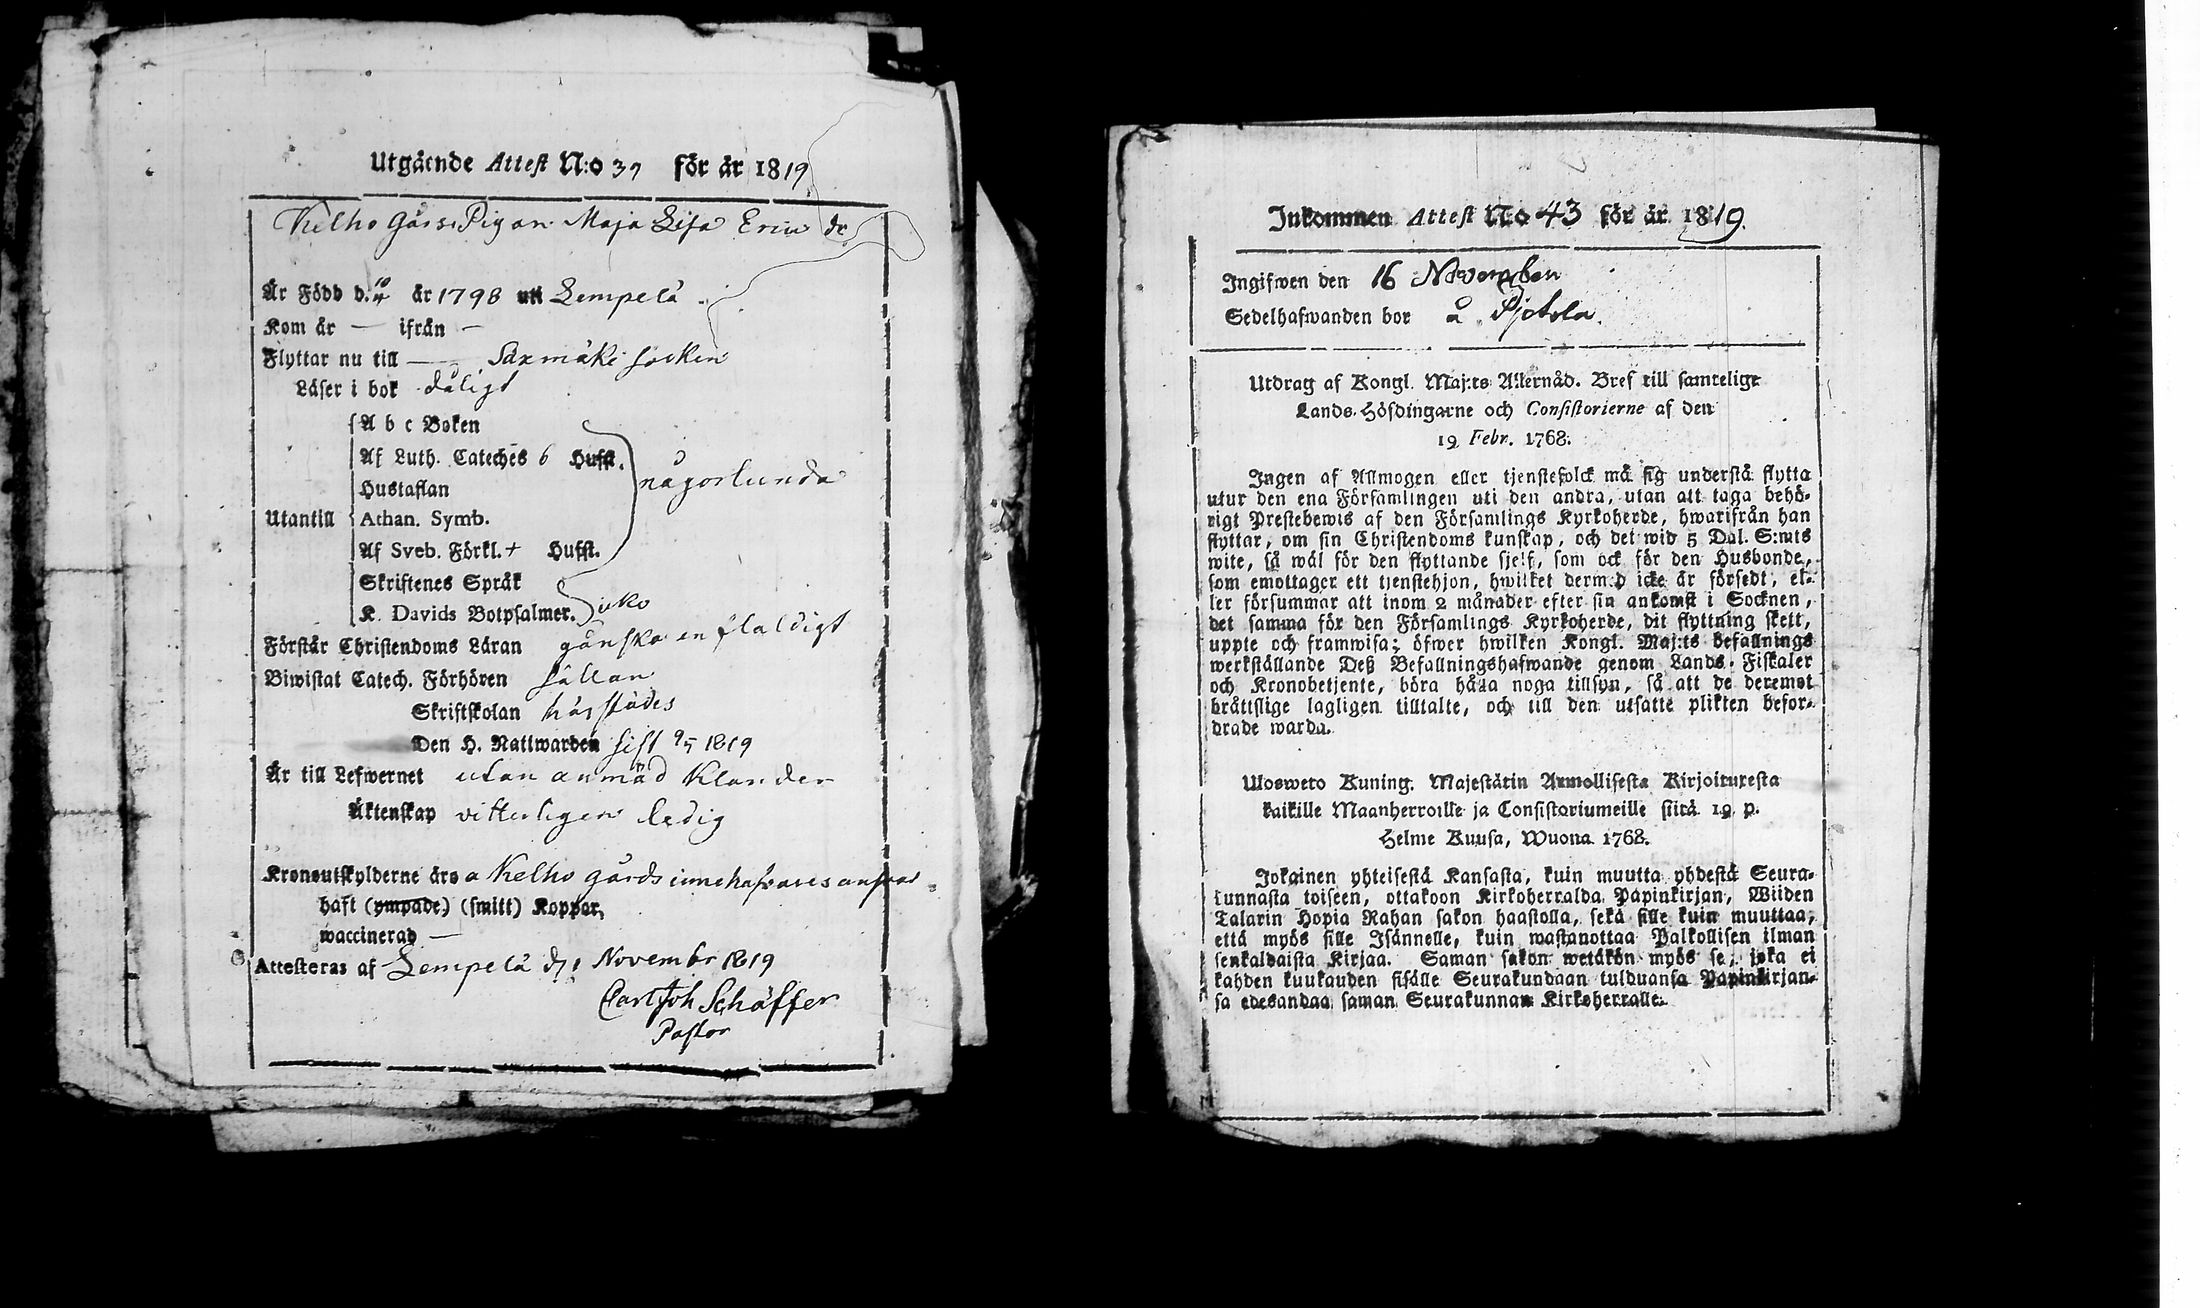 Utgående Attest N:o 37 för år 1819
Kelho Gårds Pigan Maja Lisa Erics dr
Är Född d. 10/4 år 1798 uti Lempelä
Kom år — ifrån —
Flyttar nu till — Saxmäki socken
Läser i bok dåligt
A b c Boken
Af Luth. Cateches 6 Hufst.
Hustaflan
någorlunda
Utantill Athan. Symb.
Af Sveb. Förkl. + Hufst.
Skriftenes Språk
K. Davids Botpsalmer. icke
Förstår Christendoms Läran ganska enfaldigt
Biwistat Catech. Förhören sällan
Skriftskolan härstädes
Den H. Nattwarden sist 9/5 1819
Är till Lefwernet utan anmäd Klander
Äktenskap vitterligen ledig
Kronoutskylderne äro a Kelho gårds innehafvares ansvar
haft (ympade) (smitt) Koppor,
waccinerad —
Attesteras af Lempelä d. 1 Novembr 1819
Carl Joh Schäffer
Pastor
Inkommen Attest No 43 för år 1819.
Ingifwen den 16 November
Sedelhafwanden bor å
Utdrag af Kongl. Maj:ts Allernåd. Bref till samtelige
Lands-Höfdingarne och Consistorierne af den
19 Febr. 1768.
Ingen af Allmogen eller tjenstefolck må sig understå flytta
utur den ena Församlingen uti den andra, utan att taga behö-
rigt Prestebewis af den Församlings Kyrkoherde, hwarifrån han
flyttar, om sin Christendoms kunskap, och det wid 5 Dal. S:mts
wite, så wäl för den flyttande sjelf, som ock för den Husbonde,
som emottager ett tjenstehjon, hwilket dermed icke är försedt, el-
ler försummar att inom 2 månader efter sin ankomst i Socknen,
det samma för den Församlings Kyrkoherde, dit flyttning skett,
uppte och framwisa; öfwer hwilken Kongl. Maj:ts befallnings
werkställande Deß Befallningshafwande genom Lands-Fiskaler
och Kronobetjente, böra hålla noga tillsyn, så att de deremot
bråttslige lagligen tilltalte, och till den utsatte plikten befor-
drade warda.
Ulosweto Kuning. Majestätin Armollisesta Kirjoituresta
kaikille Maanherroille ja Consistoriumeille siitä 19. p.
Helme Kuusa, Wuona 1768.
Jokainen yhteisestä Kansasta, kuin muutta yhdestä Seura-
kunnasta toiseen, ottakoon Kirkoherralda Papinkirjan, Wiiden
Talarin Hopia Rahan sakon haastolla, sekä sille kuin muuttaa,
että myös sille Isännelle, kuin wastanottaa Palkollisen ilman
senkaldaista Kirjaa. Saman sakon wetäkön myös se, joka ei
kahden kuukauden sisälle Seurakundaan tulduansa Papinkirjan-
sa edesandaa saman Seurakunnan Kirkoherralle.